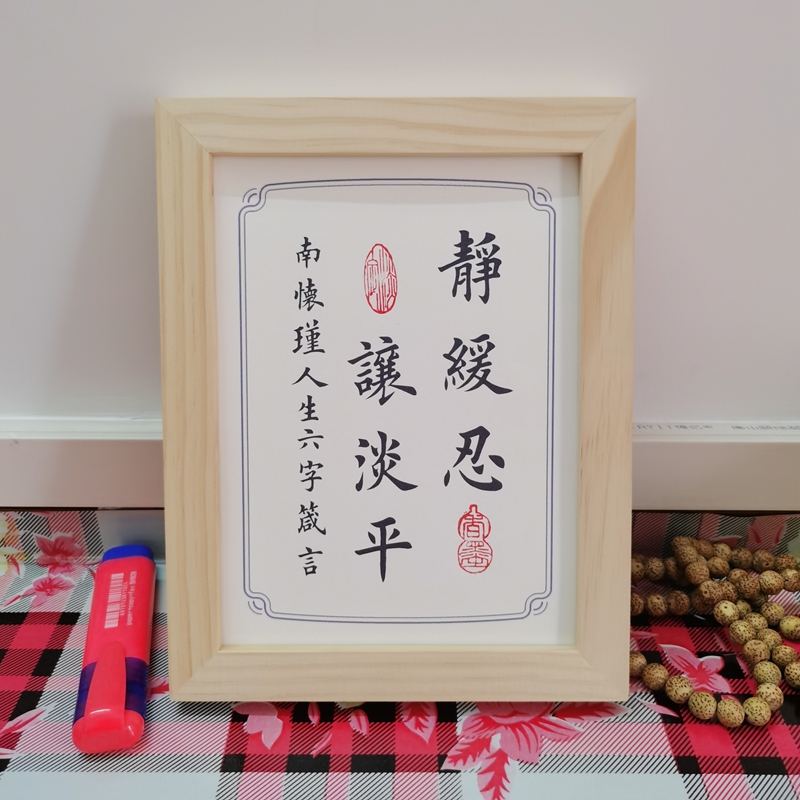 靜緩忍
讓淡平
南懷瑾人生六字箴言